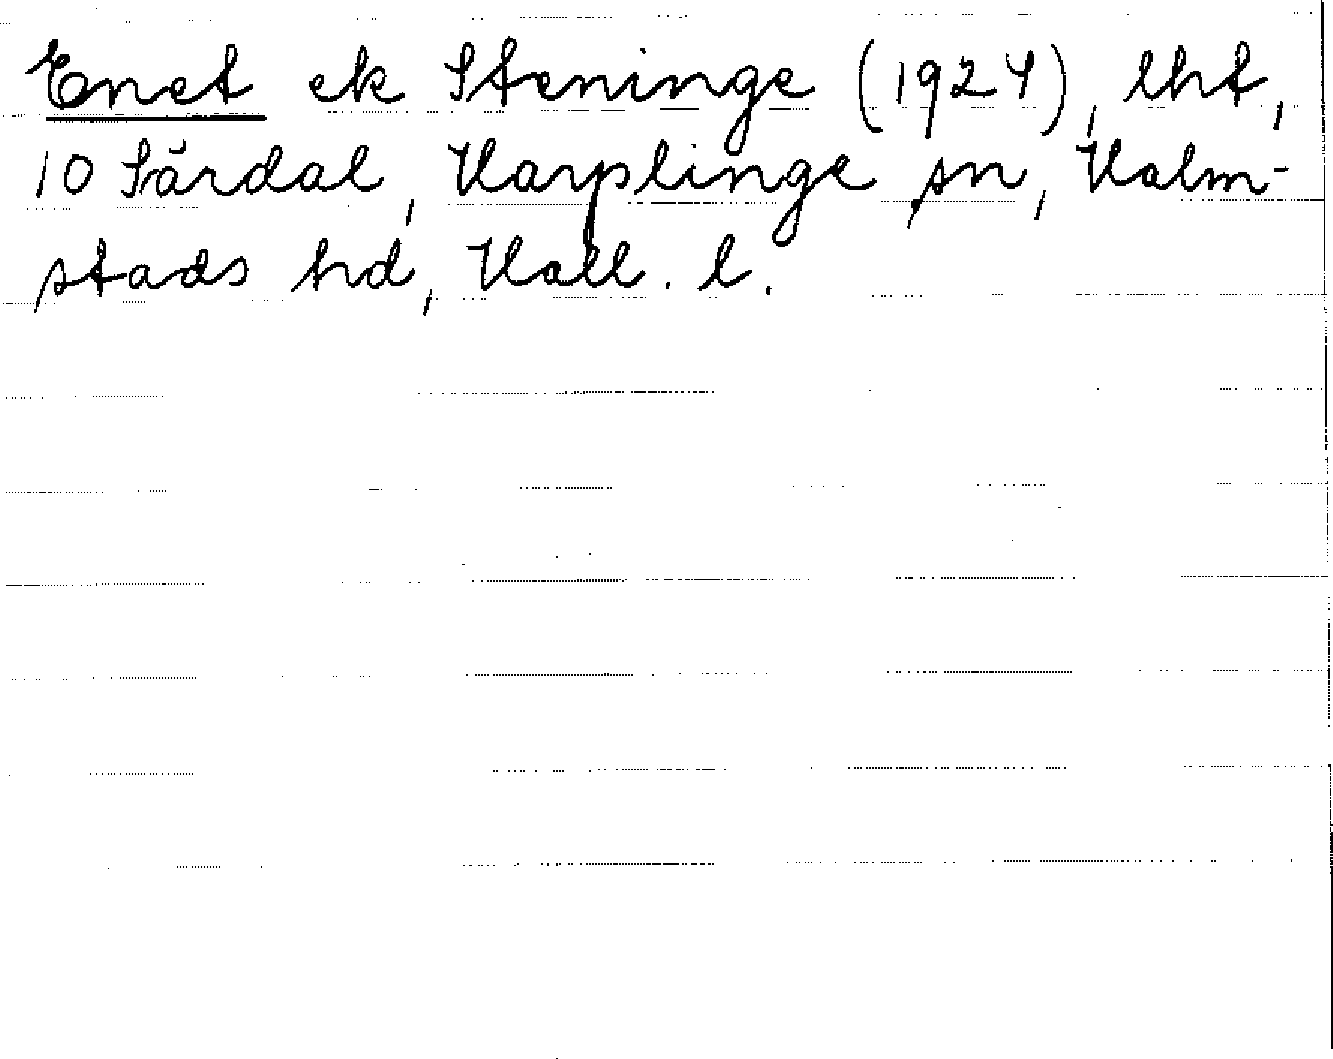 Enet ek Steninge (1924), lht,
10 Särdal, Harplinge sn, Halm-
stads hd, Hall. l.